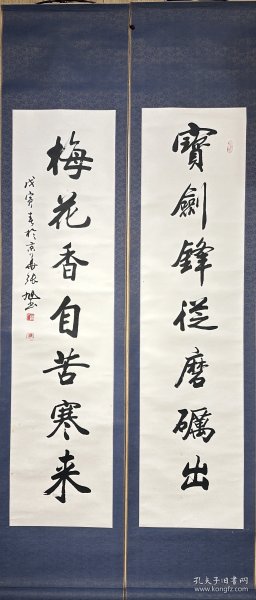 寶劍鋒從磨礪出
梅花香自苦寒来
戊寅春於京華張旭書
孔夫子旧书网
www.kongfz.com